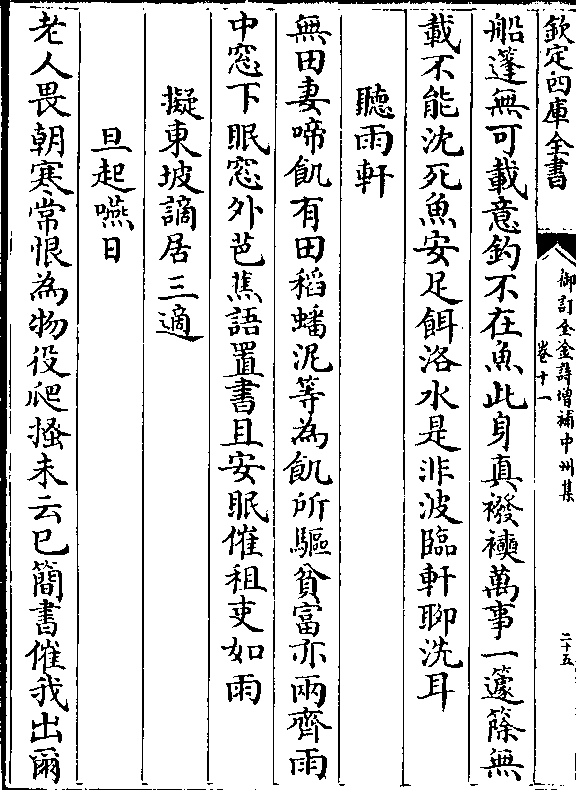 欽定四庫全書
御訂全金詩增補中州集
卷十一
二十五
船篷無可載意釣不在魚此身真襏襫萬事一籧篨無
載不能沈死魚安足餌洛水是非波臨軒聊洗耳
聽雨軒
無田妻啼飢有田稻蟠泥等為飢所驅貧富亦兩齊雨
中窓下眠窓外芭蕉語置書且安眠催租吏如雨
擬東坡謫居三適
旦起嚥日
老人畏朝寒常恨為物役爬搔未云已簡書催我出爾